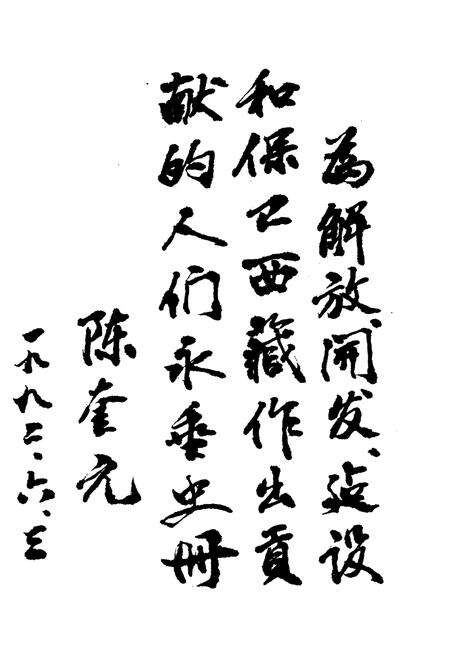 為解放、開发、建设
和保卫西藏作出貢
献的人们永垂史冊
陈奎元
一九九二、六、三